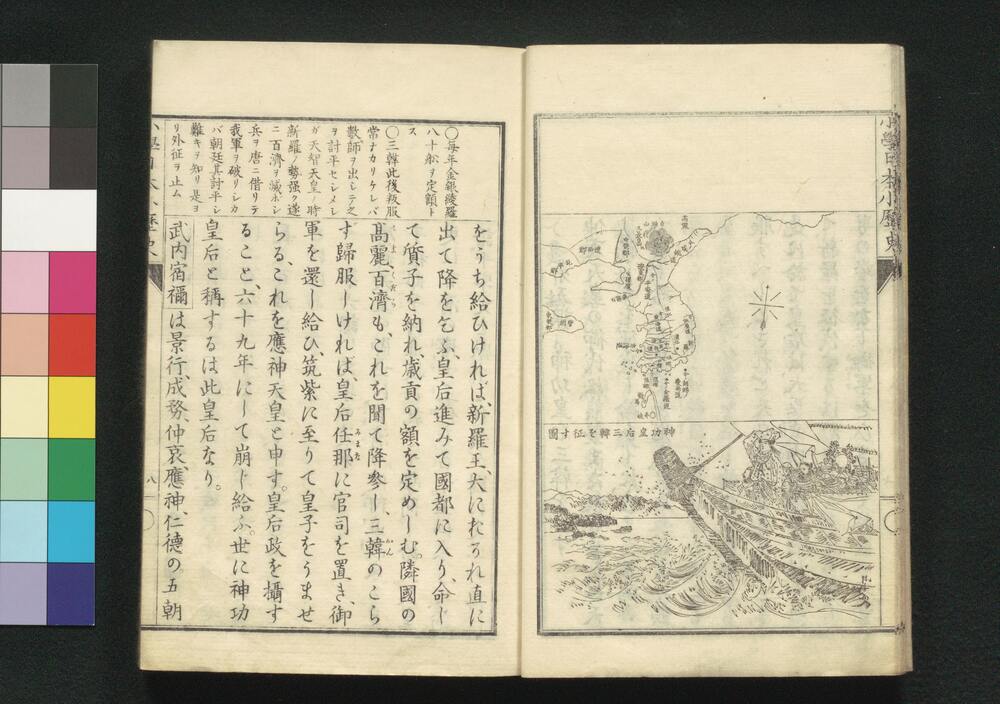 小學日本小歷史
神功皇后三韓を征す圖
○每年金銀綾羅
八十船ヲ定額ト
ス
○三韓此後叛服
常ナカリケレバ
數師ヲ出シテ之
ヲ討平セシメシ
ガ天智天皇ノ時
新羅ノ勢强ク遂
ニ百濟ヲ滅ホシ
兵ヲ唐ニ借リテ
我軍ヲ破リシカ
バ朝廷其討平シ
難キヲ知リ是ヨ
リ外征ヲ止ム
をうち給ひければ、新羅王、大におそれ直に
出て降を乞ふ、皇后進みて國都に入り、命じ
て質子を納れ、歳貢の額を定めしむ。隣國の
高麗、百濟も、これを聞て降參し、三韓のこら
ず歸服しければ、皇后任那に官司を置き、御
軍を還し給ひ、筑紫に至りて皇子をうませ
らる、これを應神天皇と申す。皇后政を攝す
ること、六十九年にして崩じ給ふ。世に神功
皇后と稱するは此皇后なり。
武内宿禰は景行、成務、仲哀、應神、仁德の五朝
八